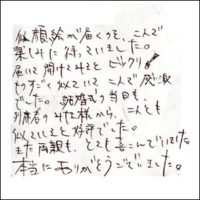 似顔絵が届くのを、二人で
楽しみに待っていました。
届いて開けてみるとビックリ!
ものすごく似ていて 二人で感激
でした。結婚式の当日も、
列席者のみな様から、二人とも
似ていると好評でした。
また両親も、とても喜こんでいました。
本当にありがとうございました。